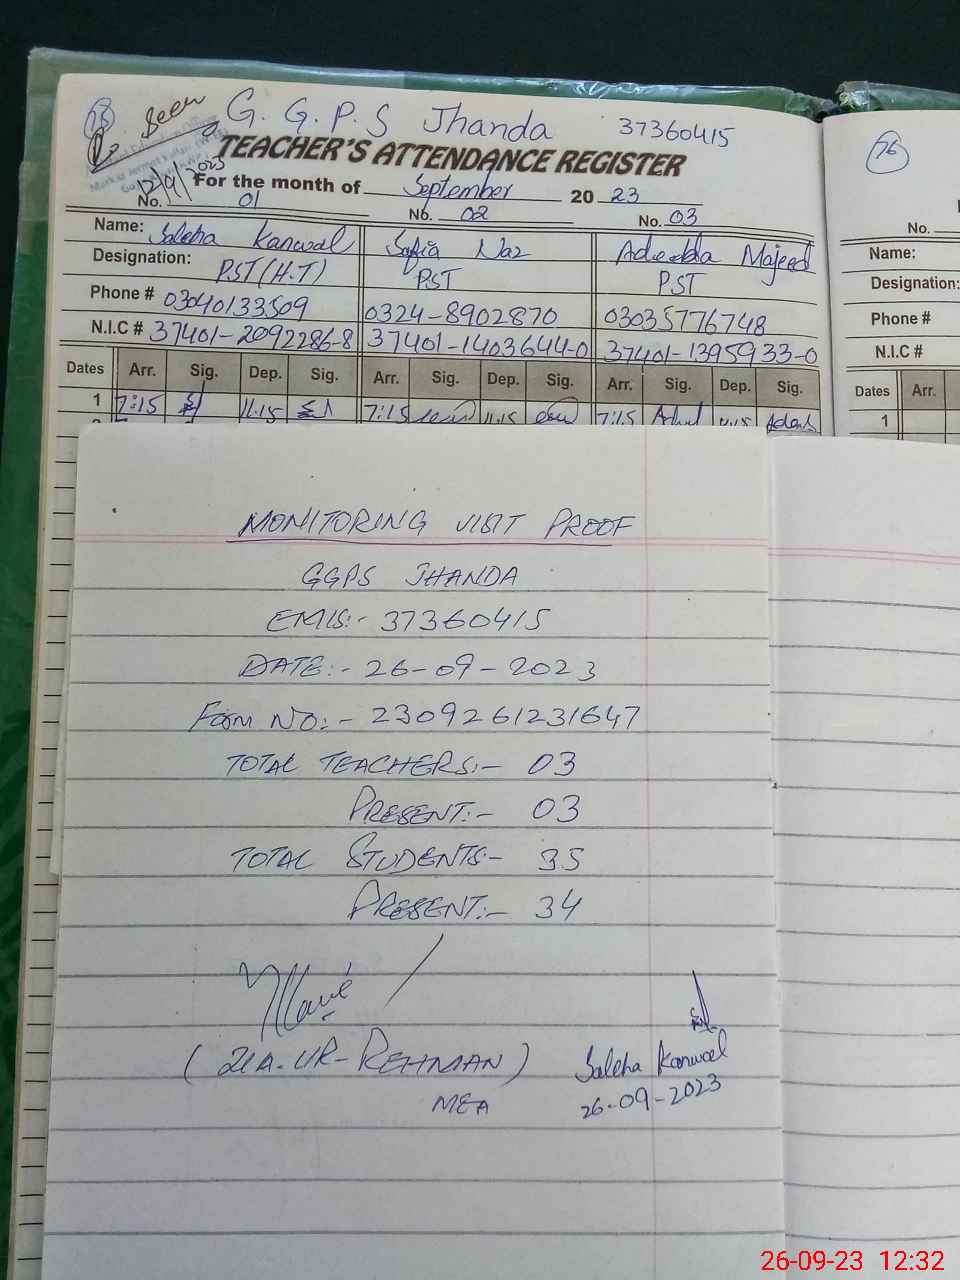 75
Seen
G. G. P. S Jhanda 37360415
TEACHER'S ATTENDANCE REGISTER
12/9/2023
For the month of September 20 23
No. 01 No. 02 No. 03
Name: Saleha Kanwal Safia Naz Adeeba Majeed
Designation: PST (H.T) PST PST
Phone # 03040133509 0324-8902870 03035776748
N.I.C # 37401-2092286-8 37401-1403644-0 37401-1395933-0
Dates Arr. Sig. Dep. Sig. Arr. Sig. Dep. Sig. Arr. Sig. Dep. Sig.
1 7:15 11:15 7:15 11:15 7:15 11:15
76
No.
Name:
Designation:
Phone #
N.I.C #
Dates Arr.
1
MONITORING VISIT PROOF
GGPS JHANDA
EMIS:- 37360415
DATE:- 26-09-2023
Form NO:- 2309261231647
TOTAL TEACHERS:- 03
PRESENT:- 03
TOTAL STUDENTS:- 35
PRESENT:- 34
(ZIA-UR-REHMAN) Saleha Kanwal
MEA 26-09-2023
26-09-23 12:32